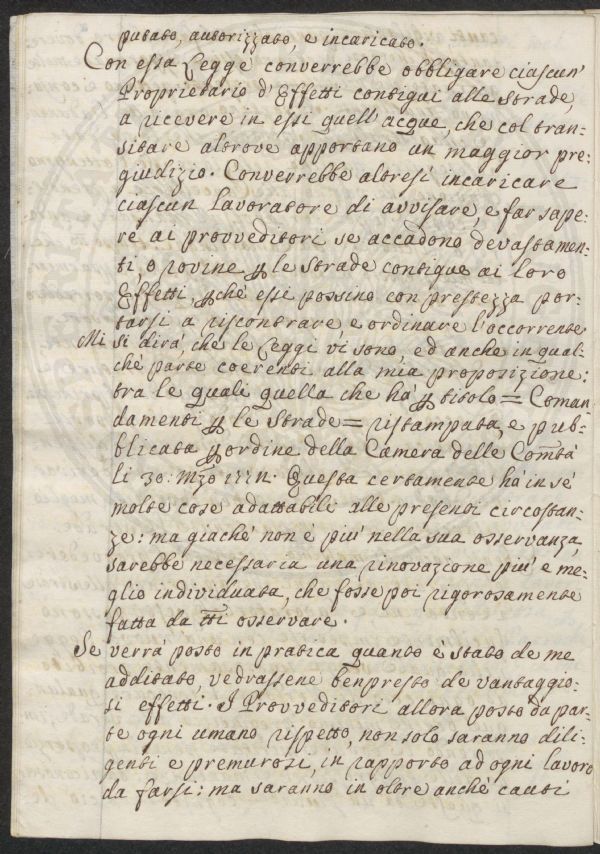 putato, autorizzato, e incaricato.
Con essa Legge converrebbe obbligare ciascun'
Proprietario d'Effetti contigui alle strade,
a ricevere in essi quell'acque, che col tran-
sitare altrove apportano un maggior pre-
giudizio. Converrebbe altresì incaricare
ciascun lavoratore di avvisare, e far sape-
re ai provveditori se accadono devastamen-
ti, o rovine ꝑ le strade contigue ai loro
Effetti, ꝑchè essi possino con prestezza por-
tarsi a riscontrare, e ordinare l'occorrente
Mi si dirà, che le Leggi vi sono, ed anche in qual-
chè parte coerenti alla mia proposizione:
tra le quali quella che hà ꝑ titolo = Coman-
damenti ꝑ le strade = ristampata, e pub-
blicata ꝑ ordine della Camera delle Comtà
li 30: Mzo Questa certamente hà in sé
molte cose adattabili alle presenti circostan-
ze: ma giachè non è più nella sua osservanza,
sarebbe necessaria una rinovazione più e me-
glio individuata, che fosse poi rigorosamente
fatta da tti osservare.
Se verrà posto in pratica quanto è stato de me
additato, vedrassene benpresto de vantaggio-
si effetti. I Provveditori allora posto da par-
te ogni umano rispetto, non solo saranno dili-
genti e premurosi, in rapporto ad ogni lavoro
da farsi: ma saranno in oltre anchè cauti